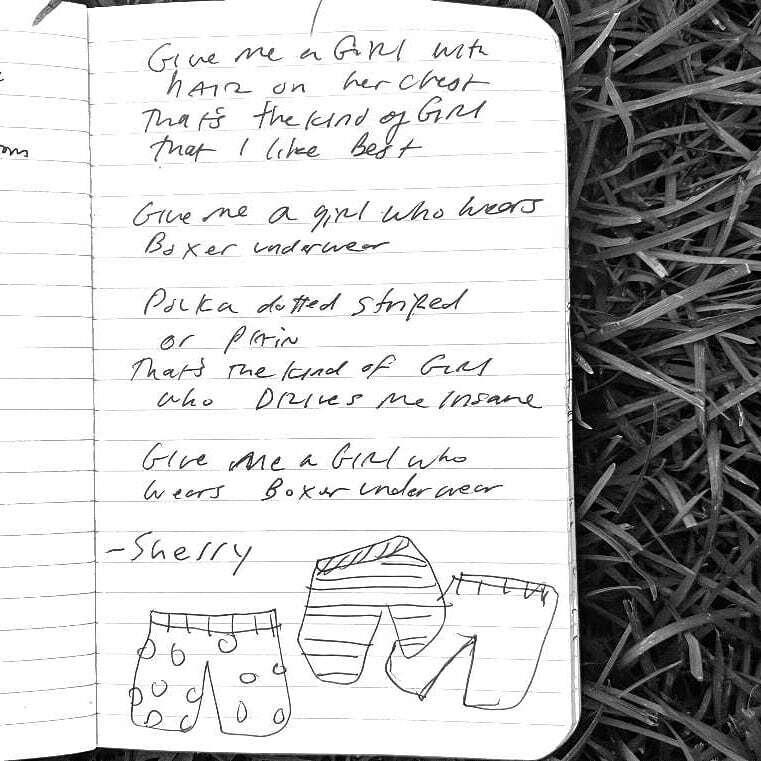 Give me a Girl with
hAIR on her chest
That's the kind of Girl
that I like Best
Give me a girl who wears
Boxer underwear
Polka dotted striped
or plain
That's the kind of Girl
who DRIVES me Insane
Give me a Girl who
wears Boxer underwear
-Sherry